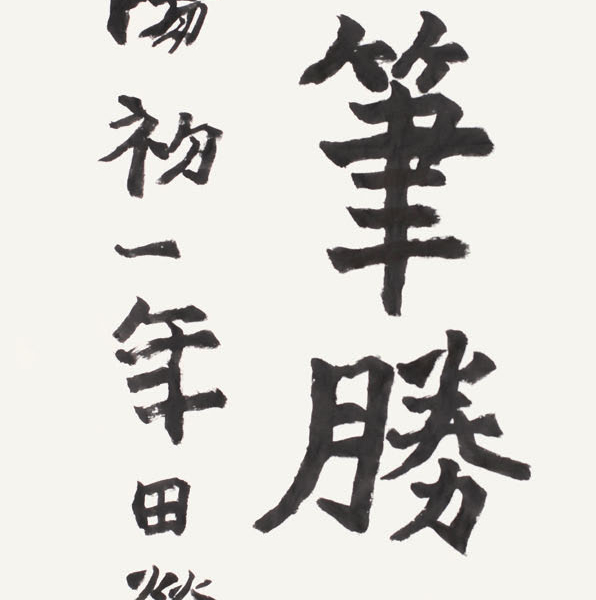 筆勝
初一年田